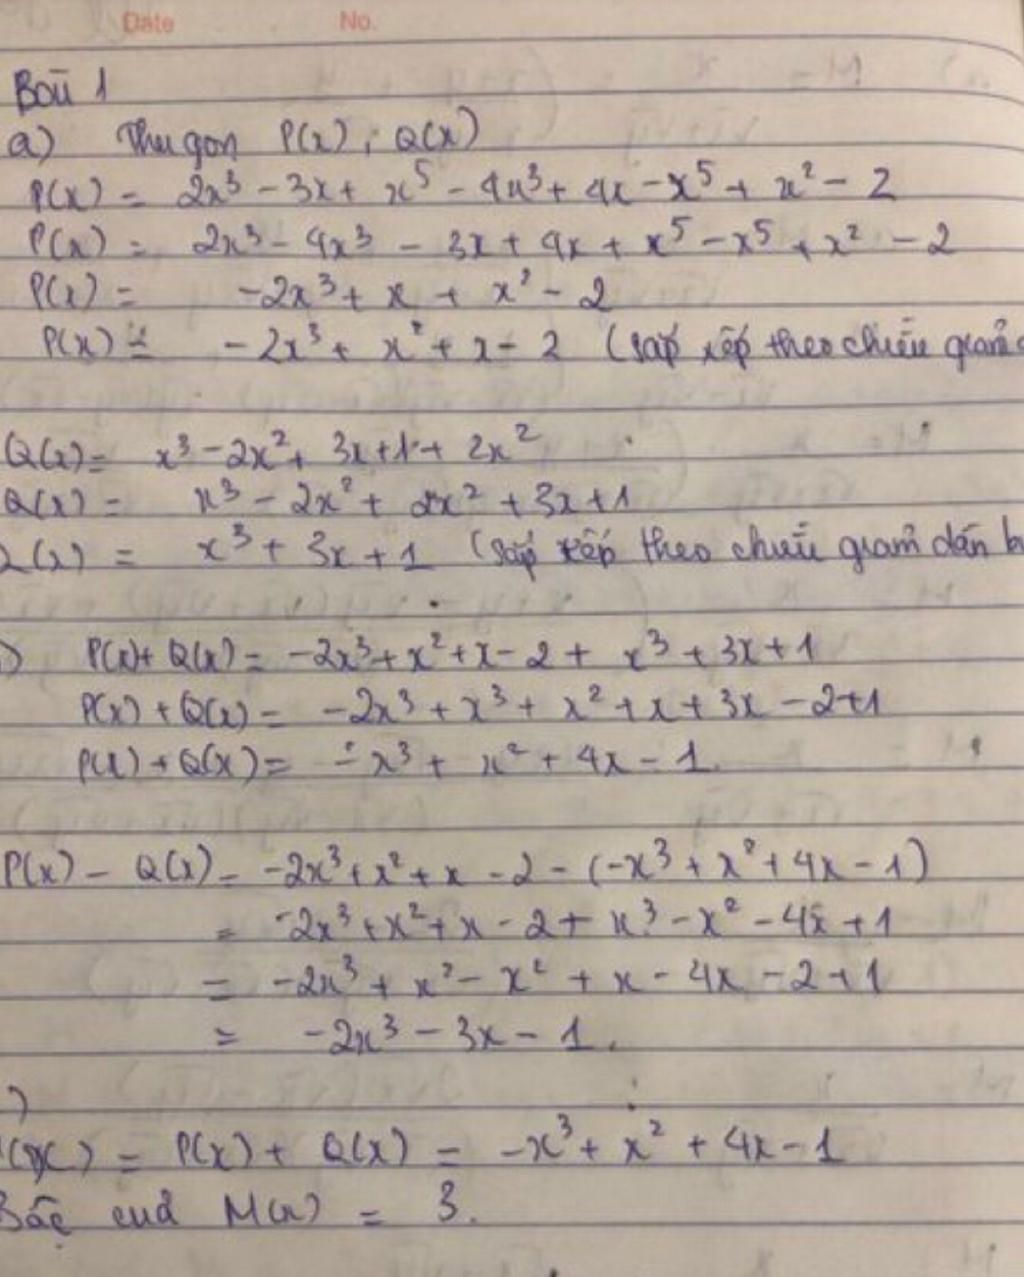 Date No.
Bài 1
a) Thu gọn P(x); Q(x)
P(x) = 2x³ - 3x + x⁵ - 4x³ + 4x - x⁵ + x² - 2
P(x) = 2x³ - 4x³ - 3x + 4x + x⁵ - x⁵ + x² - 2
P(x) = -2x³ + x + x² - 2
P(x) = -2x³ + x² + x - 2 (sắp xếp theo chiều giảm
Q(x) = x³ - 2x² + 3x + 1 + 2x²
Q(x) = x³ - 2x² + 2x² + 3x + 1
Q(x) = x³ + 3x + 1 (sắp xếp theo chiều giảm dần b
) P(x) + Q(x) = -2x³ + x² + x - 2 + x³ + 3x + 1
P(x) + Q(x) = -2x³ + x³ + x² + x + 3x - 2 + 1
P(x) + Q(x) = -x³ + x² + 4x - 1.
P(x) - Q(x) = -2x³ + x² + x - 2 - (-x³ + x² + 4x - 1)
= -2x³ + x² + x - 2 + x³ - x² - 4x + 1
= -2x³ + x² - x² + x - 4x - 2 + 1
= -2x³ - 3x - 1.
)
(x) = P(x) + Q(x) = -x³ + x² + 4x - 1
Bậc của M(x) = 3.